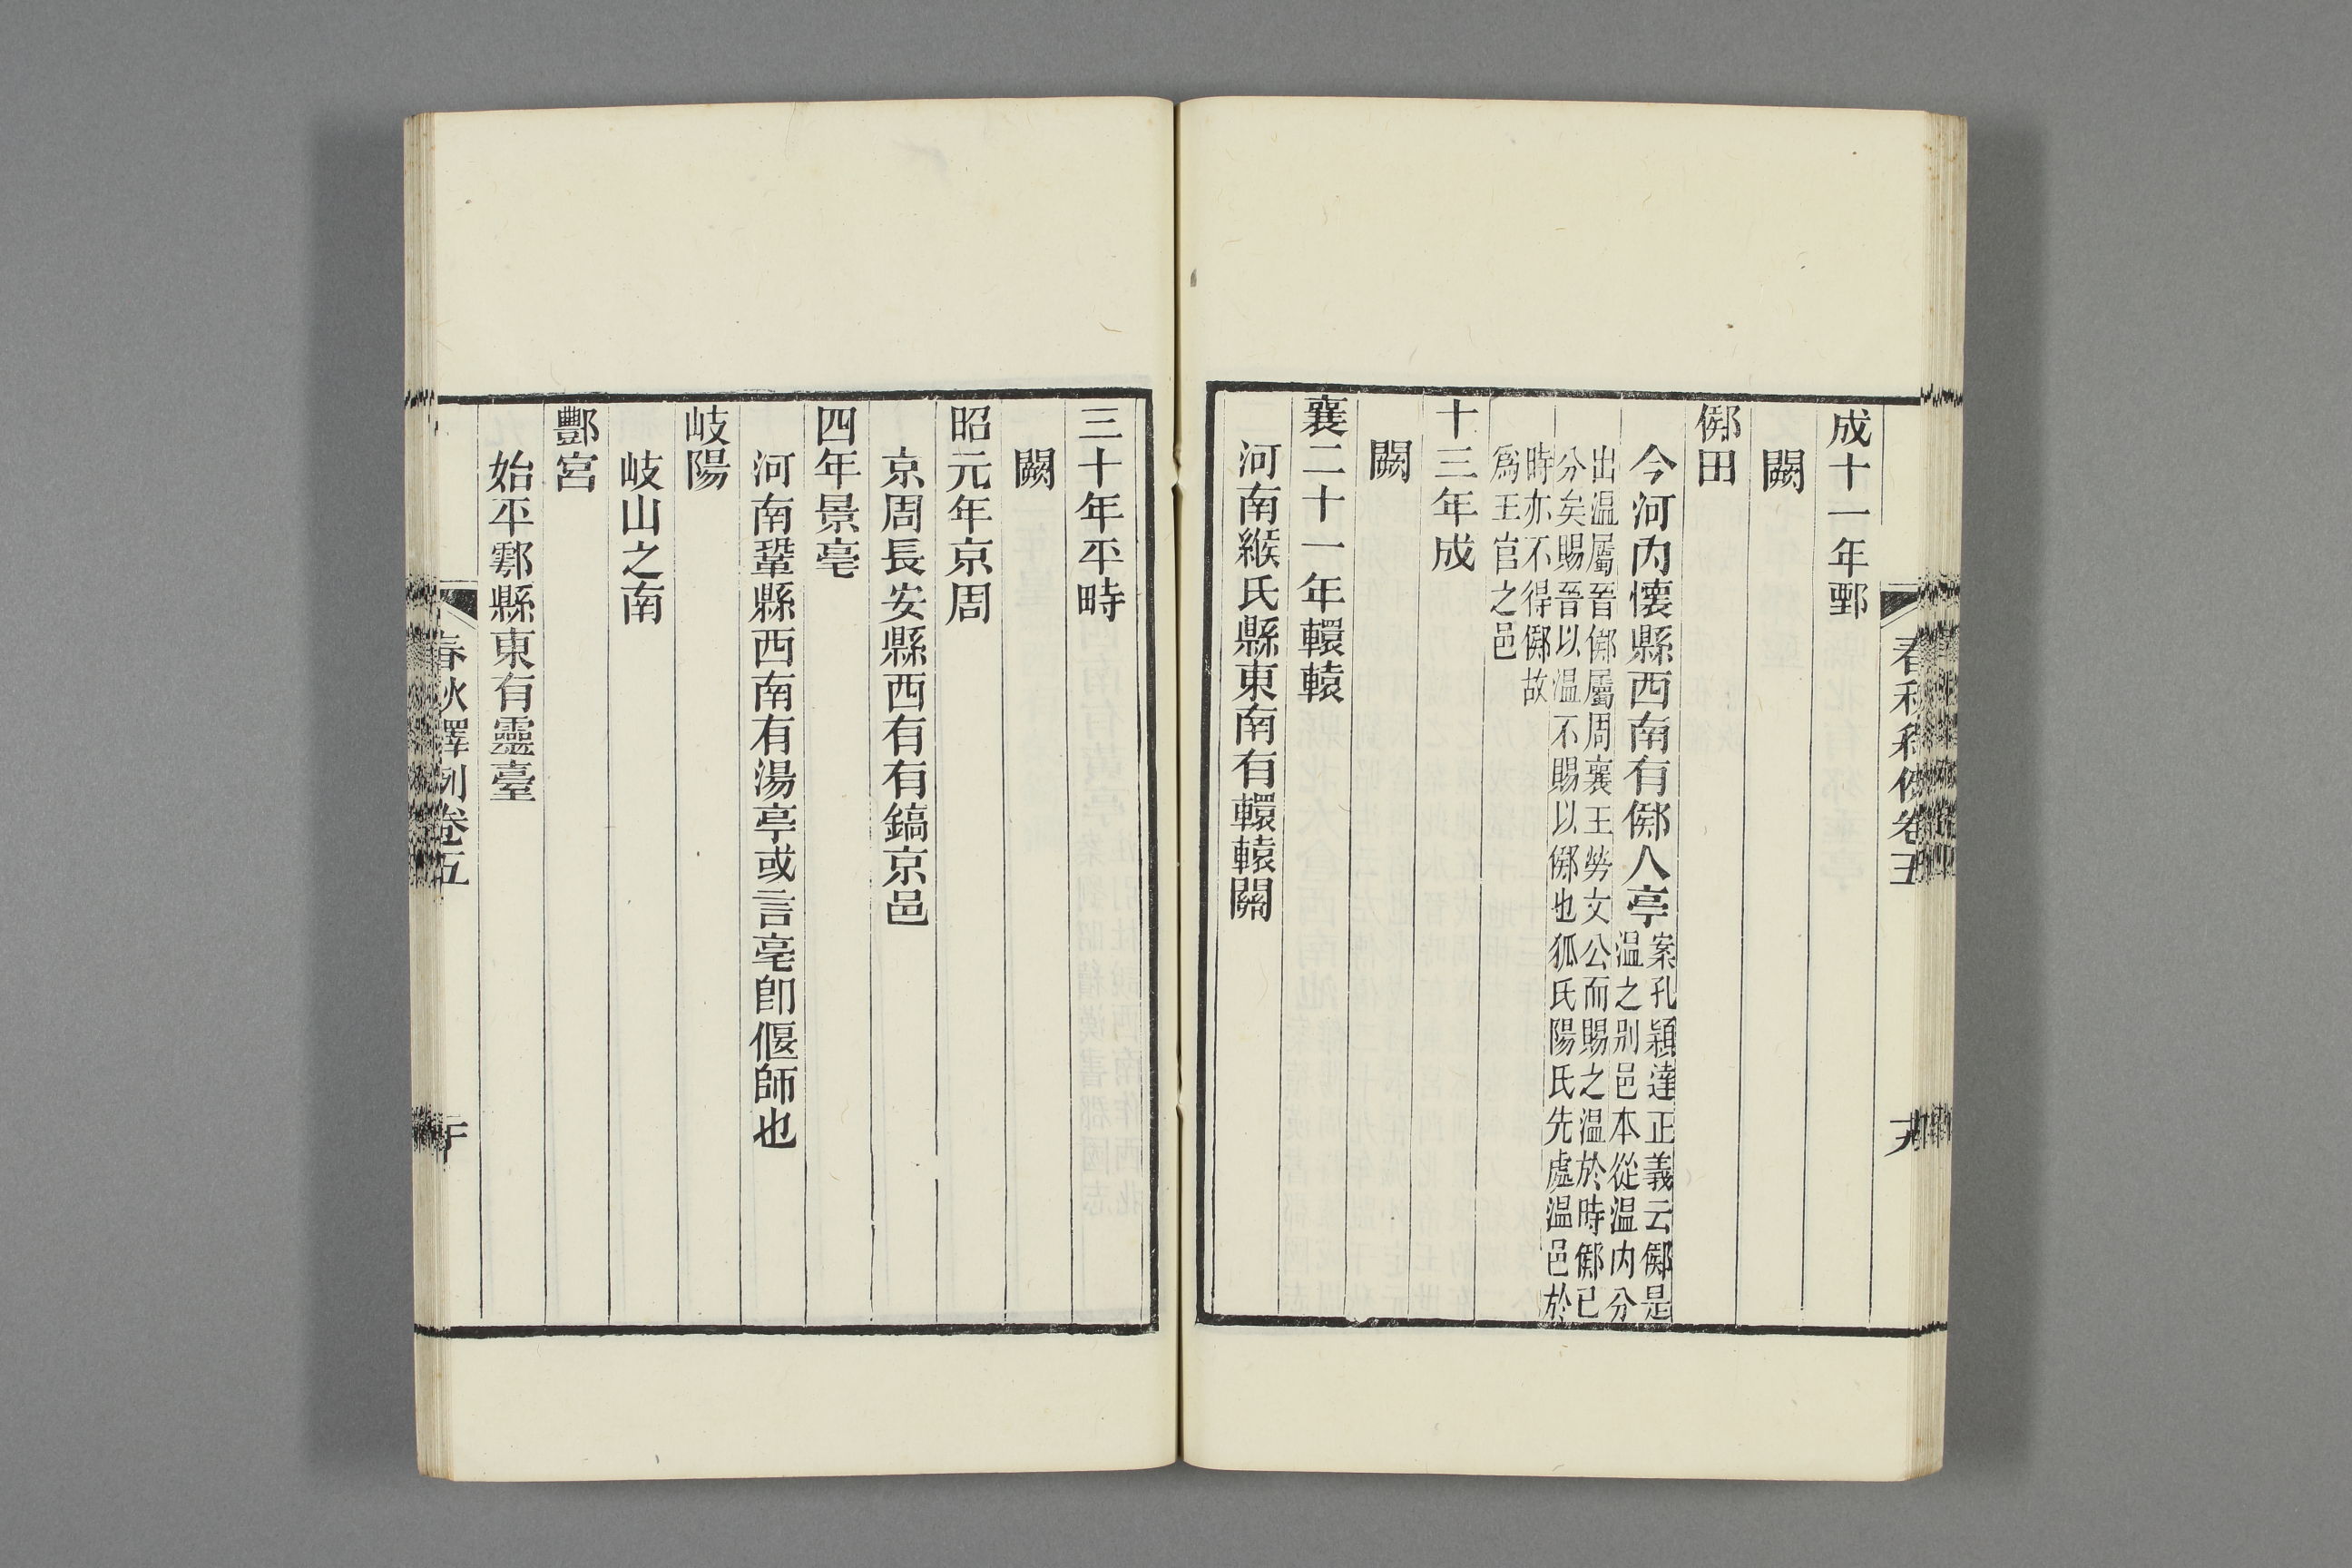 春秋釋例卷五
成十一年鄄
闕
鄇田
今河内懷縣西南有鄇人亭
案孔穎達正義云鄇是
温之别邑本從温内分
出温屬晉鄇屬周襄王勞文公而賜之温於時鄇已
分矣賜晉以温不賜以鄇也狐氏陽氏先處温邑於
時亦不得鄇故
爲王官之邑
十三年成
闕
襄二十一年轘轅
河南緱氏縣東南有轘轅關
三十年平畤
闕
昭元年京周
京周長安縣西有有鎬京邑
四年景亳
河南鞏縣西南有湯亭或言亳卽偃師也
岐陽
岐山之南
酆宮
始平鄠縣東有靈臺
春秋釋例卷五